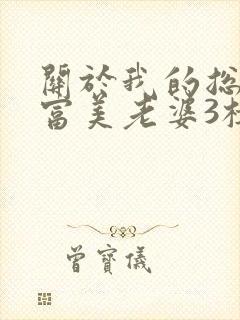 關於我的
富美老婆3
曾寶儀